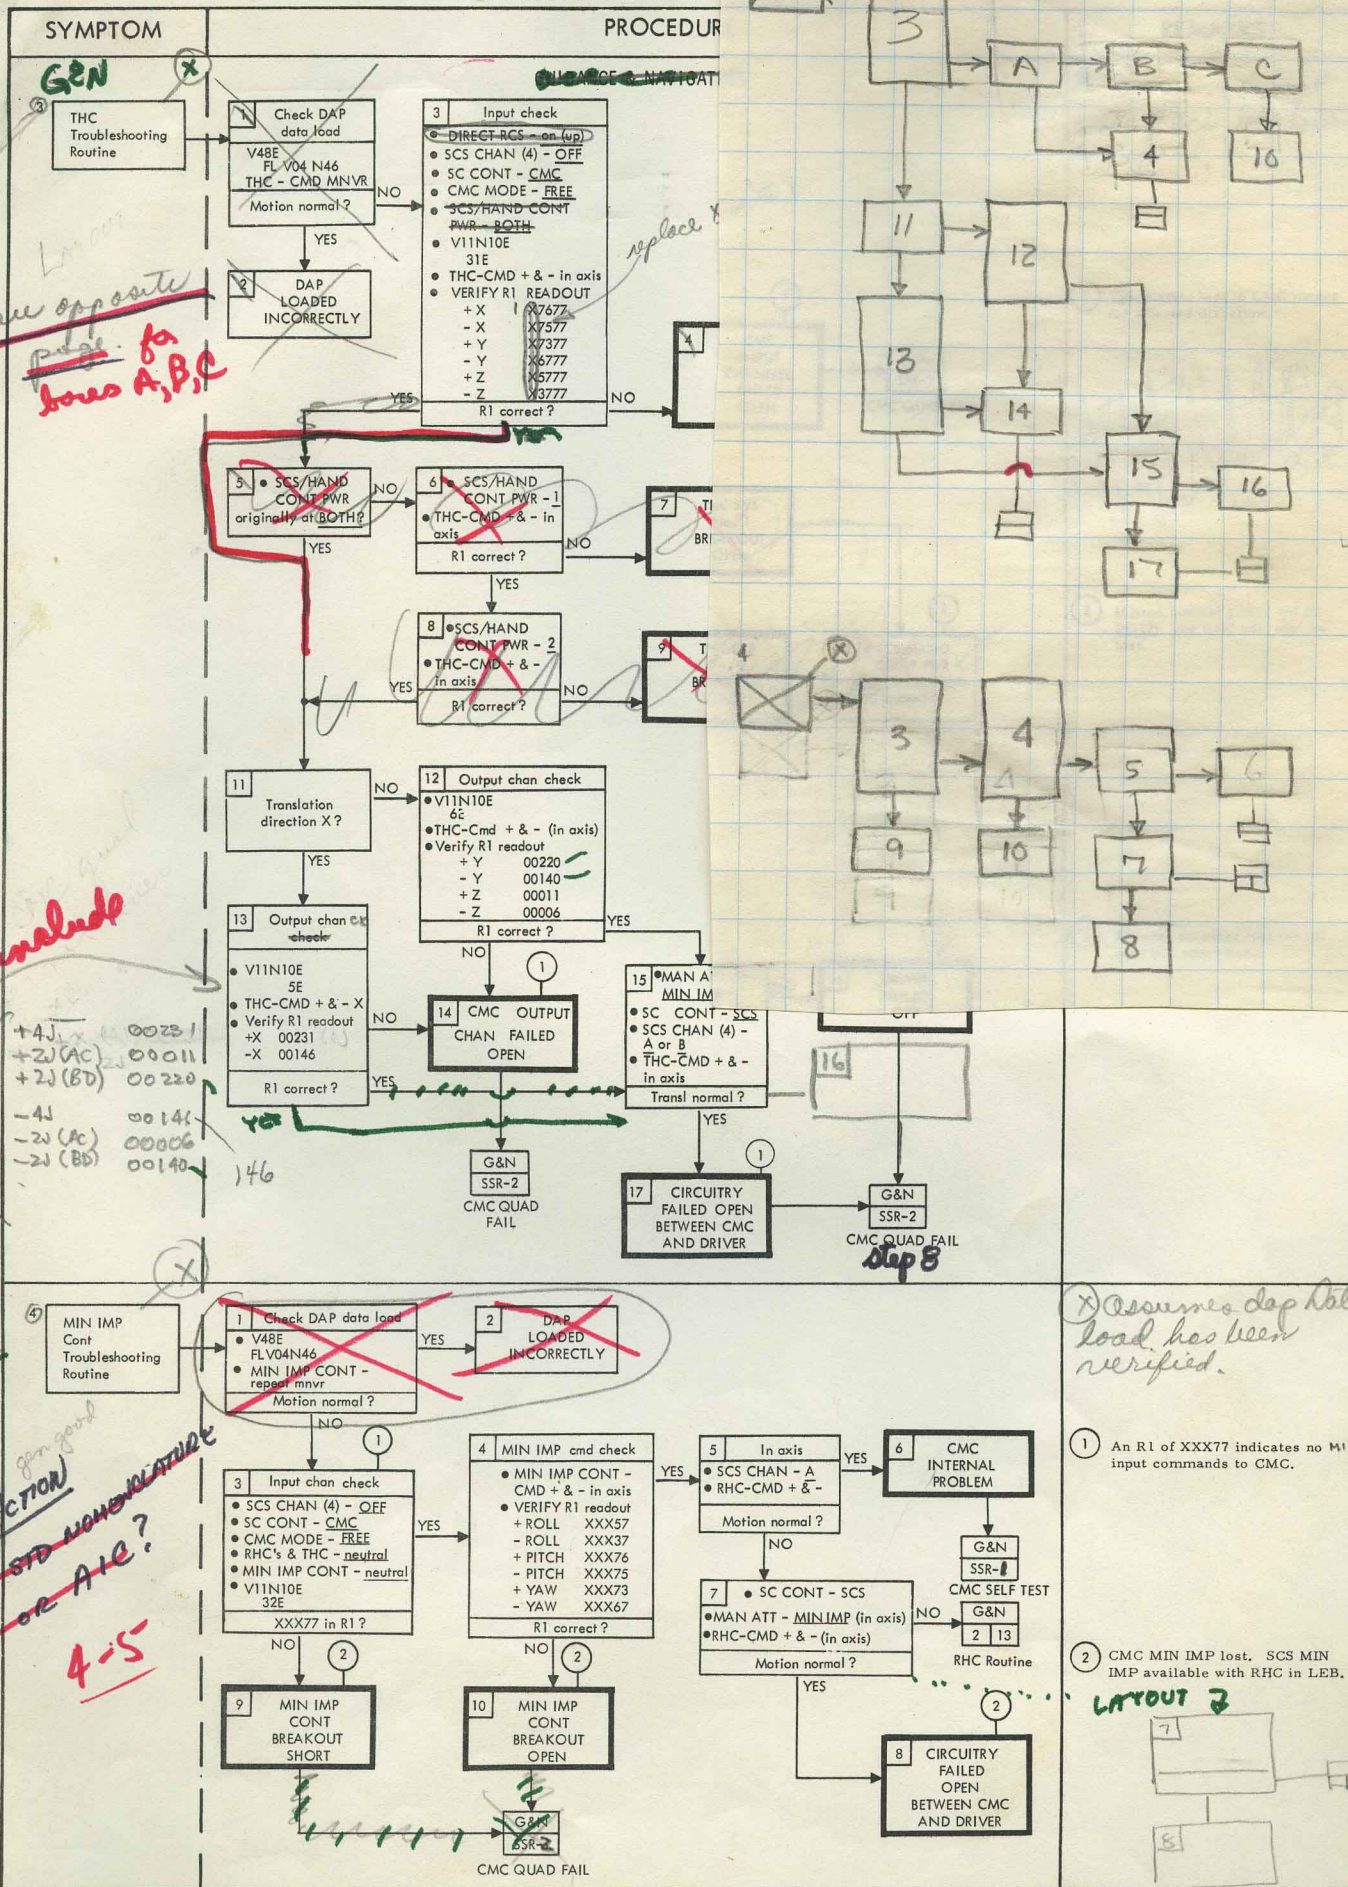 SYMPTOM
PROCEDUR
G&N
X
GUIDANCE & NAVIGATI
3
THC
Troubleshooting
Routine
1
Check DAP
data load
V48E
FL V04 N46
THC - CMD MNVR
Motion normal ?
NO
YES
2
DAP
LOADED
INCORRECTLY
3 Input check
• DIRECT RCS - on (up)
• SCS CHAN (4) - OFF
• SC CONT - CMC
• CMC MODE - FREE
• SCS/HAND CONT
PWR - BOTH
• V11N10E
31E
• THC-CMD + & - in axis
• VERIFY R1 READOUT
+ X 1 X7677
- X X7577
+ Y X7377
- Y X6777
+ Z X5777
- Z X3777
R1 correct ?
YES
NO
replace
opposite
page. for
boxes A, B, C
4
YES
5
• SCS/HAND
CONT PWR
originally at BOTH?
NO
YES
6
• SCS/HAND
CONT PWR - 1
• THC-CMD + & - in
axis
R1 correct ?
NO
YES
7
T
BRE
8
• SCS/HAND
CONT PWR - 2
• THC-CMD + & -
in axis
R1 correct ?
YES
NO
9
T
BR
11
Translation
direction X ?
NO
YES
12 Output chan check
• V11N10E
6E
• THC-Cmd + & - (in axis)
• Verify R1 readout
+ Y 00220
- Y 00140
+ Z 00011
- Z 00006
R1 correct ?
YES
NO
include
13 Output chan ck
check
• V11N10E
5E
• THC-CMD + & - X
• Verify R1 readout
+X 00231
-X 00146
R1 correct ?
NO
YES
YES
+4J 00231
+2J (AC) 00011
+2J (BD) 00220
-4J 00146
-2J (AC) 00006
-2J (BD) 00140
146
1
14 CMC OUTPUT
CHAN FAILED
OPEN
G&N
SSR-2
CMC QUAD
FAIL
15 • MAN A
MIN IM
• SC CONT - SCS
• SCS CHAN (4) -
A or B
• THC-CMD + & -
in axis
Transl normal ?
YES
16
OFF
1
17 CIRCUITRY
FAILED OPEN
BETWEEN CMC
AND DRIVER
G&N
SSR-2
CMC QUAD FAIL
step 8
3
A
B
C
4
10
11
12
13
14
15
16
17
4
X
3
4
5
6
9
10
7
8
X
4
MIN IMP
Cont
Troubleshooting
Routine
1 Check DAP data load
• V48E
FLV04N46
• MIN IMP CONT -
repeat mnvr
Motion normal ?
YES
NO
2
DAP
LOADED
INCORRECTLY
X assumes dap
load has been
verified.
gen good
CTION
STD NOMENCLATURE
OR A1C?
4-5
1
3 Input chan check
• SCS CHAN (4) - OFF
• SC CONT - CMC
• CMC MODE - FREE
• RHC's & THC - neutral
• MIN IMP CONT - neutral
• V11N10E
32E
XXX77 in R1 ?
YES
NO
2
4 MIN IMP cmd check
• MIN IMP CONT -
CMD + & - in axis
• VERIFY R1 readout
+ ROLL XXX57
- ROLL XXX37
+ PITCH XXX76
- PITCH XXX75
+ YAW XXX73
- YAW XXX67
R1 correct ?
YES
NO
2
5 In axis
• SCS CHAN - A
• RHC-CMD + & -
Motion normal ?
YES
NO
6
CMC
INTERNAL
PROBLEM
G&N
SSR-1
CMC SELF TEST
7 • SC CONT - SCS
• MAN ATT - MIN IMP (in axis)
• RHC-CMD + & - (in axis)
Motion normal ?
NO
YES
G&N
2 13
RHC Routine
2
8 CIRCUITRY
FAILED
OPEN
BETWEEN CMC
AND DRIVER
9 MIN IMP
CONT
BREAKOUT
SHORT
10 MIN IMP
CONT
BREAKOUT
OPEN
G&N
SSR-2
CMC QUAD FAIL
1 An R1 of XXX77 indicates no MI
input commands to CMC.
2 CMC MIN IMP lost. SCS MIN
IMP available with RHC in LEB.
LAYOUT
7
8